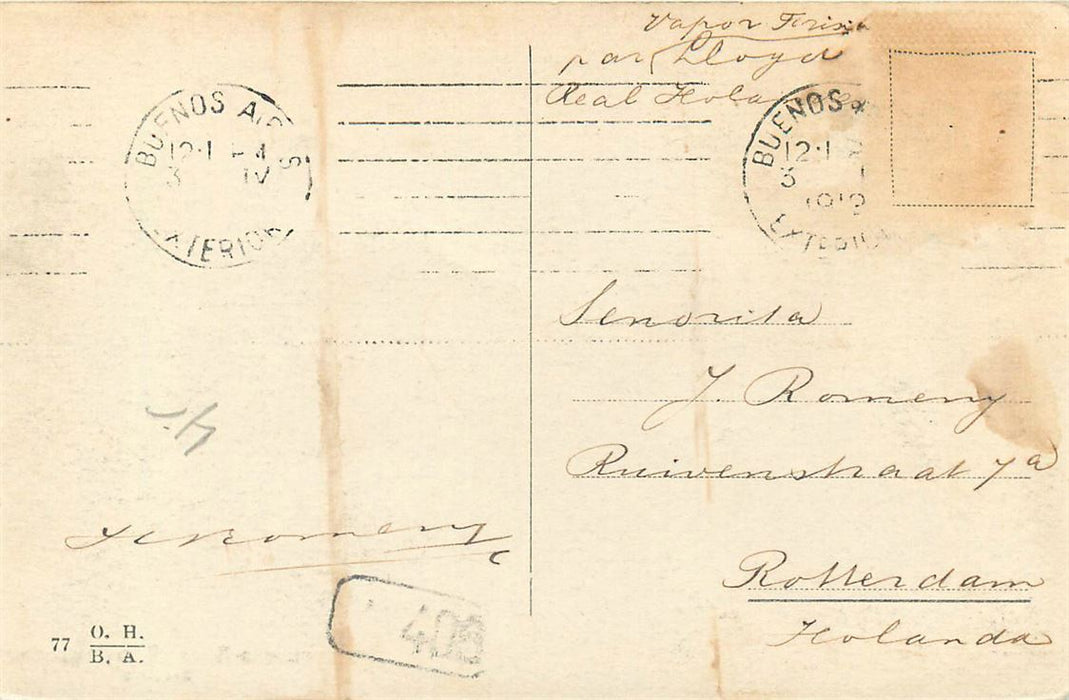 Vapor Frisia
par Lloyd
Real Hola
BUENOS AIRES
12·1
3 IV
EXTERIOR
BUENOS
12·1
3
1912
EXTERIOR
Señorita
J. Romeny
Ruivenstraat 7a
Rotterdam
Holanda
Romeny
408
77 O. H.
B. A.